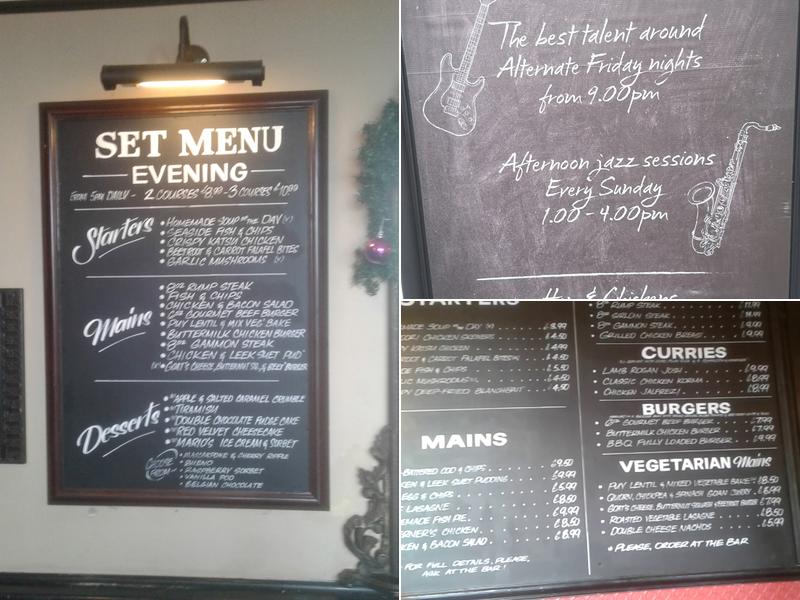 SET MENU
EVENING
FROM 5PM DAILY - 2 COURSES £8.99 - 3 COURSES £10.99
Starters
• HOMEMADE SOUP OF THE DAY (V)
• SEASIDE FISH & CHIPS
• CRISPY KATSU CHICKEN
• BEETROOT & CARROT FALAFEL BITES
• GARLIC MUSHROOMS (V)
Mains
• 8OZ RUMP STEAK
• FISH & CHIPS
• CHICKEN & BACON SALAD
• 6OZ GOURMET BEEF BURGER
• PUY LENTIL & MIX VEG BAKE
• BUTTERMILK CHICKEN BURGER
• 8OZ GAMMON STEAK
• CHICKEN & LEEK SUET PUD
(V) • GOAT'S CHEESE, BUTTERNUT SQ, & BEET BURGER
Desserts
• APPLE & SALTED CARAMEL CRUMBLE
• TIRAMISU
• DOUBLE CHOCOLATE FUDGE CAKE
• RED VELVET CHEESECAKE
• MARIO'S ICE CREAM & SORBET
CHOOSE FROM
• MASCARPONE & CHERRY RIPPLE
• BUENO
• RASPBERRY SORBET
• VANILLA POD
• BELGIAN CHOCOLATE
The best talent around
Alternate Friday nights
from 9.00pm
Afternoon jazz sessions
Every Sunday
1.00 - 4.00pm
STARTERS
MADE SOUP OF THE DAY (V) £3.99
CHICKEN SKEWERS £4.50
KATSU CHICKEN £4.99
ROOT & CARROT FALAFEL BITES (V) £4.50
DE FISH & CHIPS £5.50
LIC MUSHROOMS (V) £4.50
PY DEEP-FRIED BLANCHBAIT 4.50
MAINS
-BATTERED COD & CHIPS £9.50
KEN & LEEK SUET PUDDING £9.99
EGG & CHIPS £5.99
LASAGNE £8.50
EMADE FISH PIE £9.99
ERNER'S CHICKEN £8.50
KEN & BACON SALAD £8.99
FOR FULL DETAILS, PLEASE,
ASK AT THE BAR!
• 8OZ RUMP STEAK £11.99
• 8OZ SIRLOIN STEAK
• 8OZ GAMMON STEAK £9.00
• GRILLED CHICKEN BREAST £9.99
CURRIES
• LAMB ROGAN JOSH £9.99
• CLASSIC CHICKEN KORMA £8.99
• CHICKEN JALFREZI £8.99
BURGERS
• 6OZ GOURMET BEEF BURGER £7.99
• BUTTERMILK CHICKEN BURGER £7.99
• B.B.Q. FULLY LOADED BURGER £9.99
VEGETARIAN Mains
• PUY LENTIL & MIXED VEGETABLE BAKE £8.50
• QUORN, CHICKPEA & SPINACH GOAN CURRY £6.99
• GOAT'S CHEESE, BUTTERNUT SQUASH & BEETROOT BURGER £7.99
• ROASTED VEGETABLE LASAGNE £8.50
• DOUBLE CHEESE NACHOS £5.99
* PLEASE, ORDER AT THE BAR